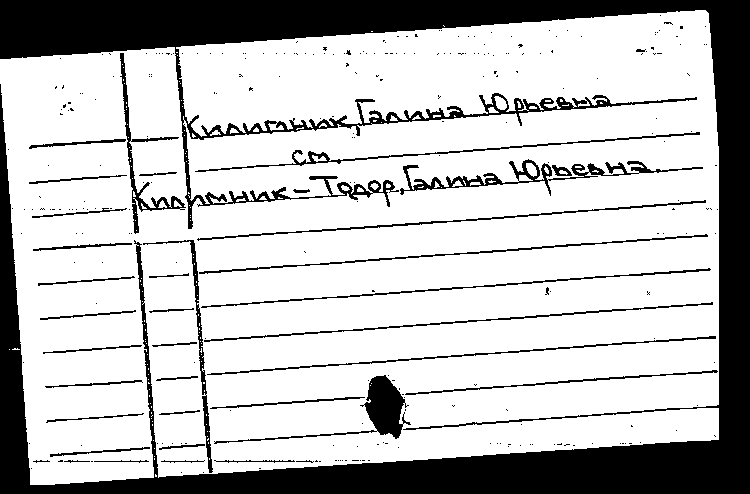 Килимник, Галина Юрьевна
см.
Килимник-Тодор, Галина Юрьевна.